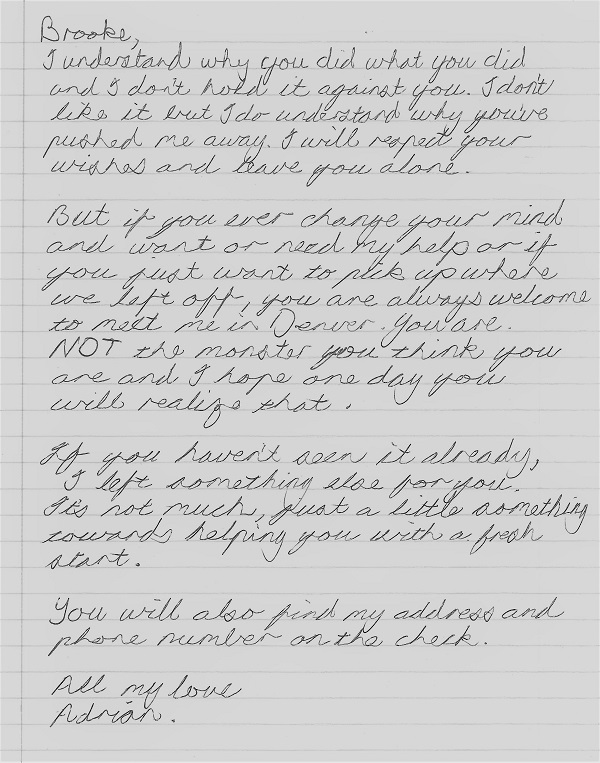 Brooke,
I understand why you did what you did
and I don't hold it against you. I don't
like it but I do understand why you've
pushed me away. I will respect your
wishes and leave you alone.
But if you ever change your mind
and want or need my help or if
you just want to pick up where
we left off, you are always welcome
to meet me in Denver. You are.
NOT the monster you think you
are and I hope one day you
will realize that.
If you haven't seen it already,
I left something else for you.
It's not much, just a little something
towards helping you with a fresh
start.
You will also find my address and
phone number on the check.
All my love
Adrian.